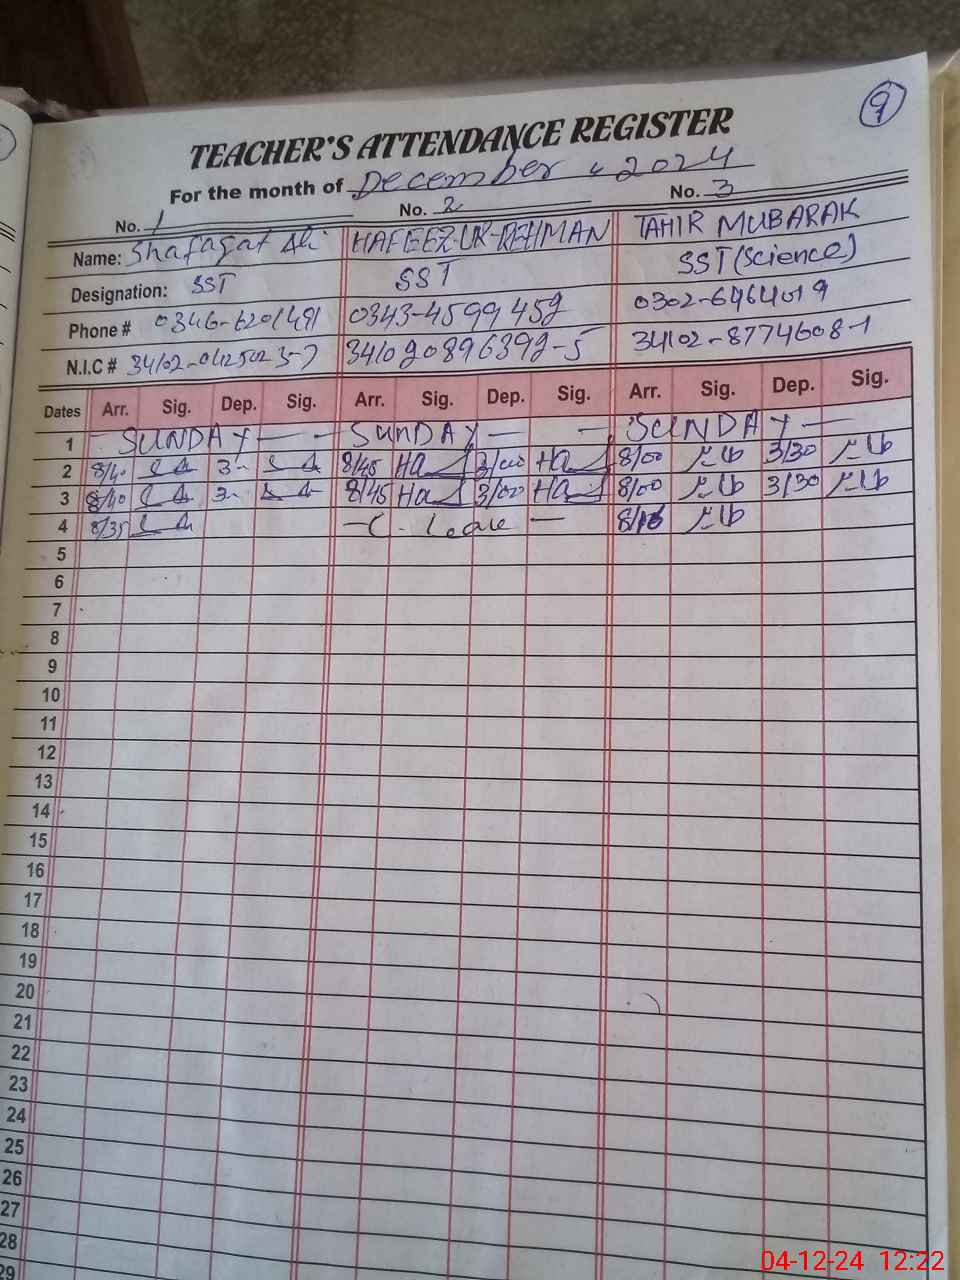 9
TEACHER'S ATTENDANCE REGISTER
For the month of December, 2024
No. 1 No. 2 No. 3
Name: Shafaqat Ali HAFEEZ-UR-REHMAN TAHIR MUBARAK
Designation: SST SST SST (Science)
Phone # 0346-6201491 0343-4599459 0302-6964019
N.I.C # 34102-0412502 3-7 34102 0896399-5 34102-8774608-1
Dates Arr. Sig. Dep. Sig. Arr. Sig. Dep. Sig. Arr. Sig. Dep. Sig.
1 - SUNDAY - - SUNDAY - - SUNDAY -
2 8/40 3- 8/45 Ha 3/00 Ha 8/00 3/30
3 8/40 3- 8/45 Ha 3/00 Ha 8/00 3/30
4 8/35 - C. Leave -
5
6
7
8
9
10
11
12
13
14
15
16
17
18
19
20
21
22
23
24
25
26
27
28
29
04-12-24 12:22